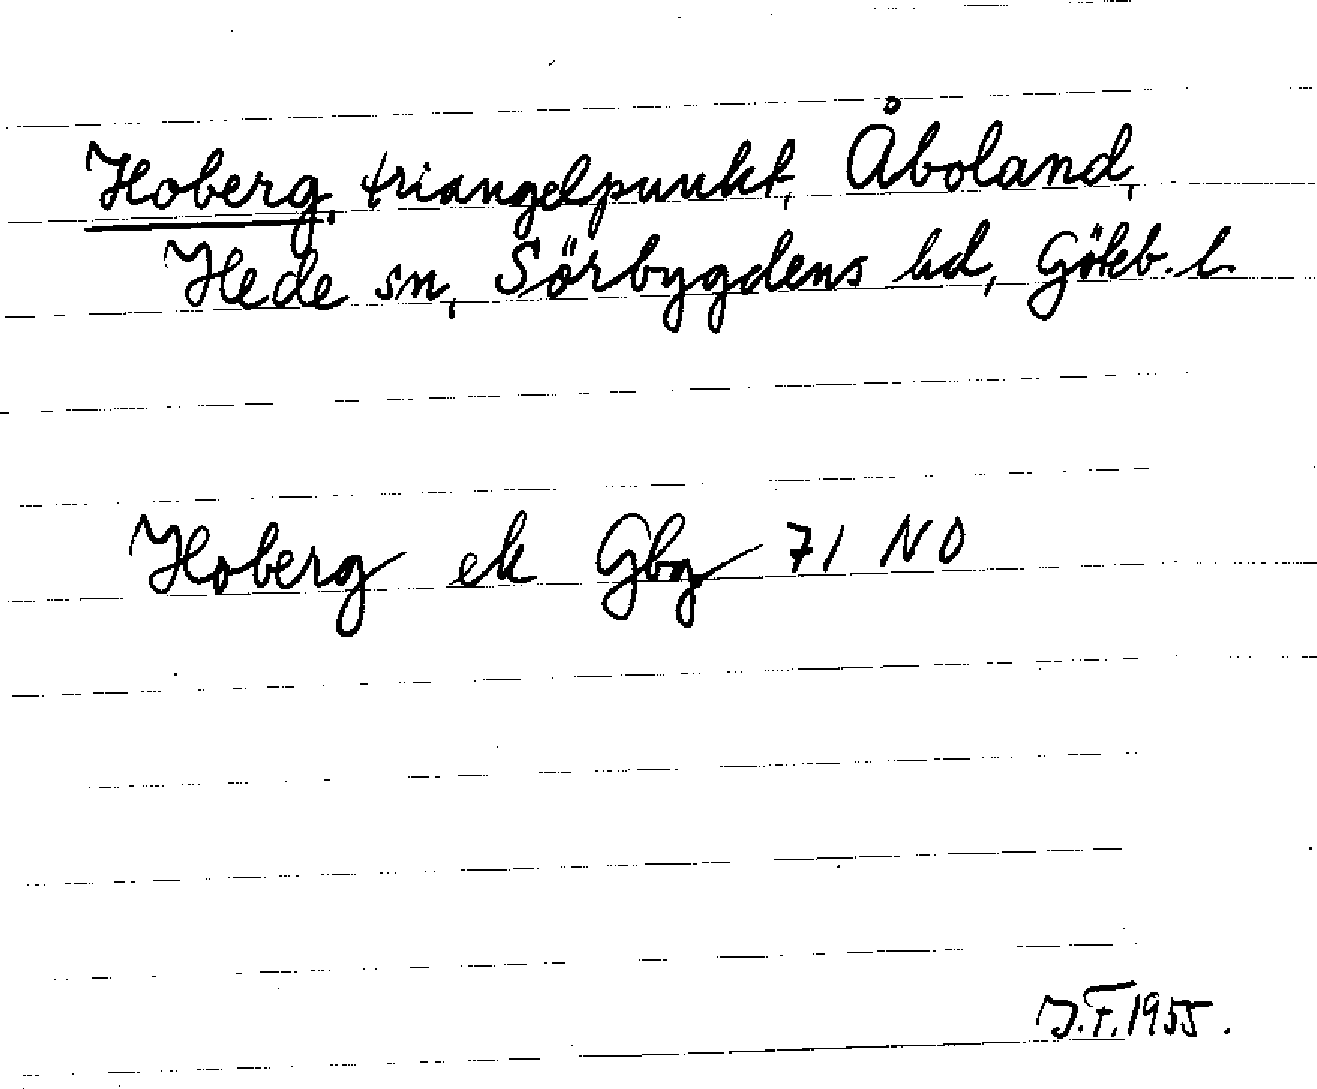 Hoberg, triangelpunkt, Åboland,
Hede sn, Sörbygdens hd, Göteb. l.
Hoberg ek Gbg 71 NO
J.F. 1955.